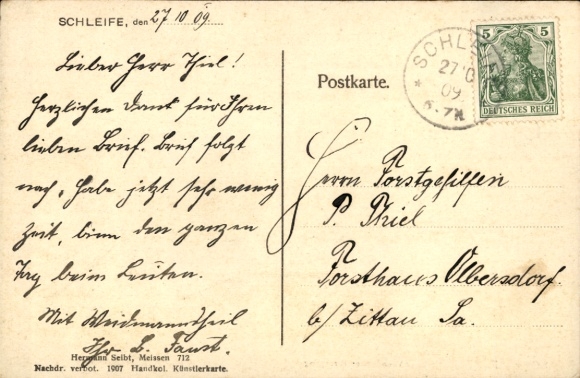 SCHLEIFE, den 27/10 09.
Lieber Herr Thiel!
Herzlichen Dank für Ihren
lieben Brief. Brief folgt
nach, habe jetzt sehr wenig
Zeit, binn den ganzen
Tag beim Leuten.
Mit Weidmannsheil
Ihr L. Faust.
Hermann Seibt, Meissen 712
Nachdr. verbot. 1907 Handkol. Künstlerkarte.
Postkarte.
SCHLEI
27 10
09
5-7N
5 5
DEUTSCHES REICH
Herrn Forstgehilfen
P. Thiel
Forsthaus Olbersdorf.
b/ Zittau Sa.